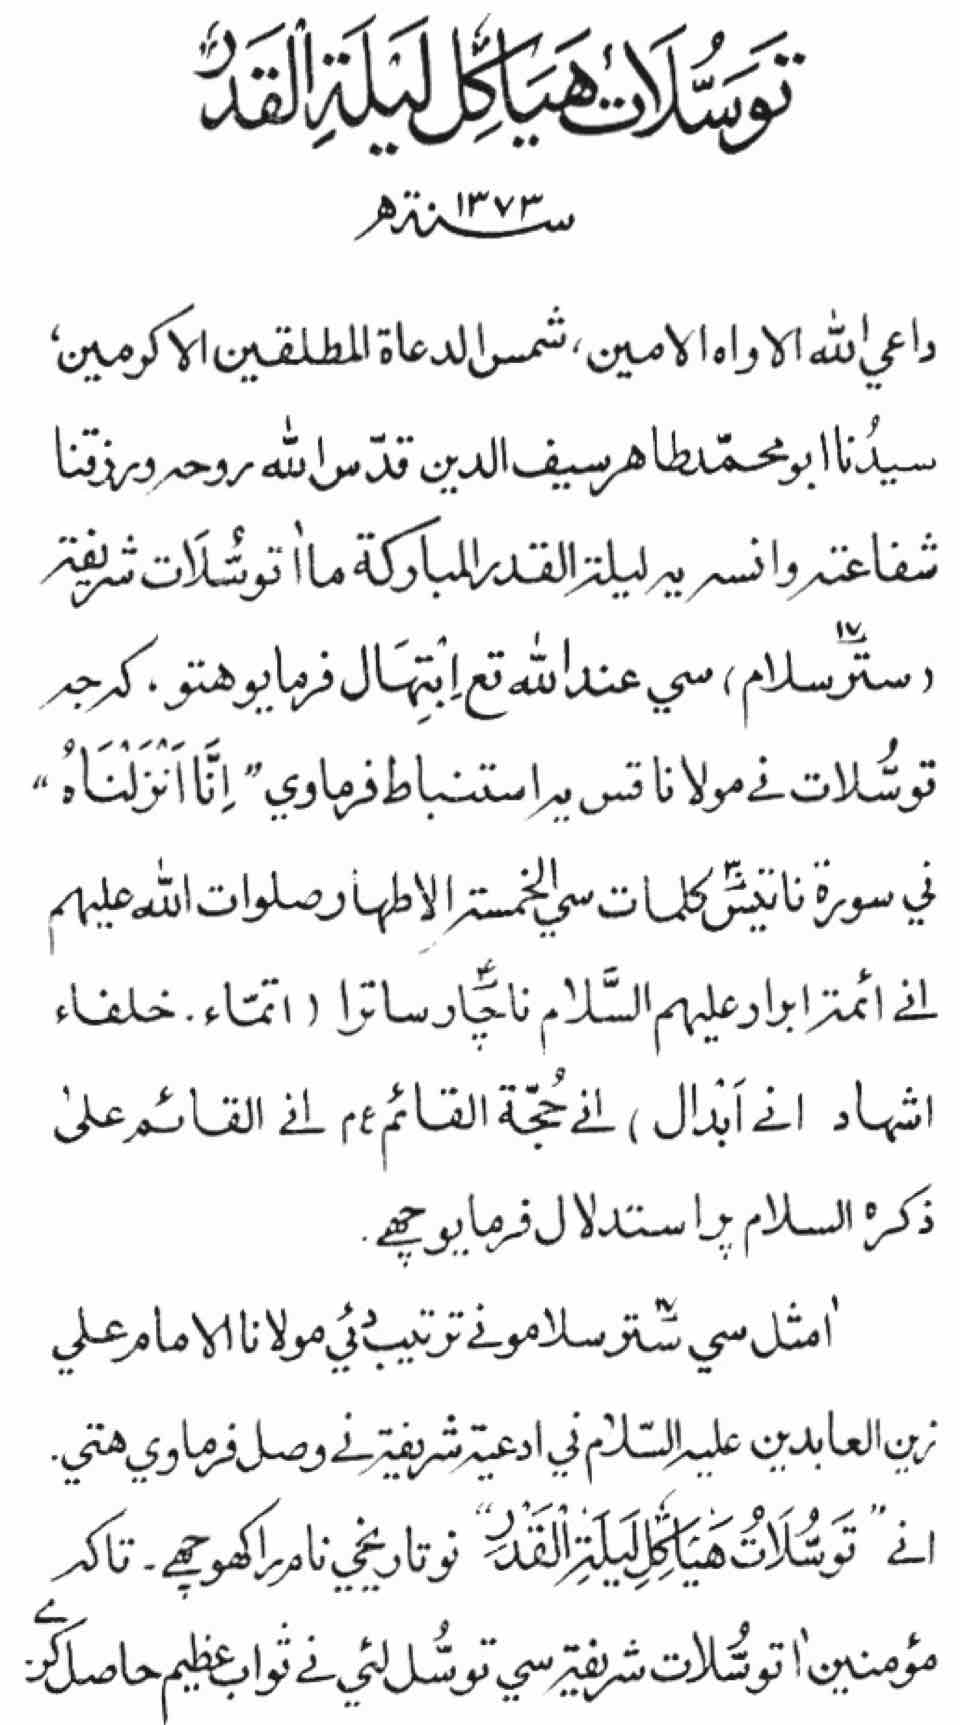 تَوَسُّلَاتُ هَيَاكِلِ لَيْلَةِ الْقَدْرِ
سنة ١٣٧٣ ه
داعي الله الاواه الامين، شمس الدعاة المطلقين الاكرمين،
سيدُنا ابو محمّد طاهر سيف الدين قدّس الله روحه ورزقنا
شفاعته وانسه يه ليلة القدر المباركة ما اٰ توسُّلَات شريفة
(ستّر ١٧ سلام) سي عند الله تع اِبْتِهَال فرمايو هتو. كه جه
توسُّلات نے مولانا قس يه استنباط فرماوي "اِنَّا اَنْزَلْنَاهُ"
ني سورة نا تيسؔ ٣٠ كلمات سي الخمسة الاطهار صلوات الله عليهم
انے ائمة ابرار عليهم السَّلام نا چّار ٤ ساترا (اتمّاء. خلفاء
اشهاد انے اَبْدال) انے حُجّة القائم ع م انے القائم علىٰ
ذكره السلام پر استدلال فرمايو چھے.
اٰمثل سي ستّر ١٧ سلامو نے ترتيب دئي مولانا الامام علي
زين العابدين عليه السّلام ني ادعية شريفة نے وصل فرماوي هتي.
انے "تَوَسُّلَاتُ هَيَاكِلِ لَيْلَةِ الْقَدْرِ" نو تاريخي نام راكھو چھے۔ تاكه
مؤمنين اٰ توسُّلات شريفة سي توسُّل لئي نے ثواب عظيم حاصل كرے.